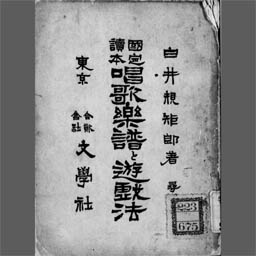 臼井規矩郎著
國定
讀本
唱歌樂譜と遊戯法
東京
合資
會社
文學社
223
675